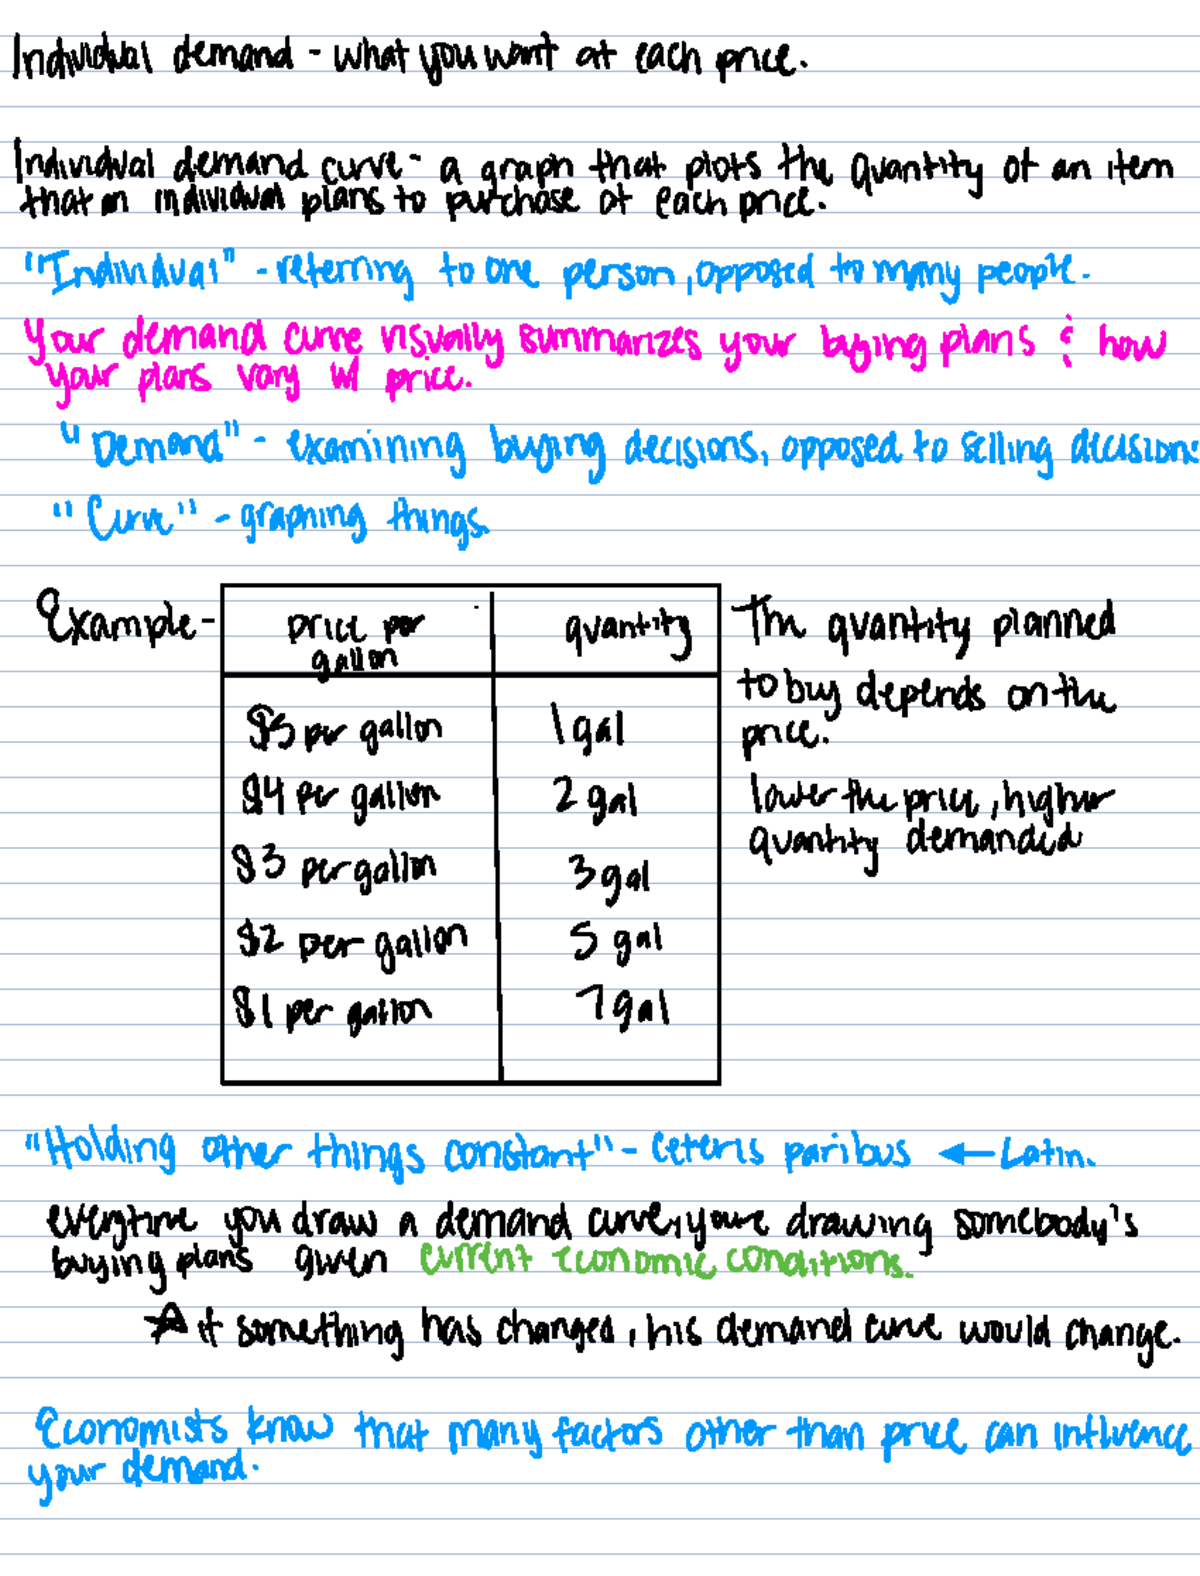 Individual demand - what you want at each price.
Individual demand curve - a graph that plots the quantity of an item
that an individual plans to purchase at each price.
"Individual" - referring to one person, opposed to many people.
Your demand curve visually summarizes your buying plans & how
your plans vary w/ price.
"Demand" - examining buying decisions, opposed to selling decisions
"Curve" - graphing things.
Example -
price per
gallon
quantity
$5 per gallon 1 gal
$4 per gallon 2 gal
$3 per gallon 3 gal
$2 per gallon 5 gal
$1 per gallon 7 gal
The quantity planned
to buy depends on the
price.
lower the price, higher
quantity demanded
"Holding other things constant" - ceteris paribus ← Latin.
everytime you draw a demand curve, youre drawing somebody's
buying plans given current economic conditions.
☆ if something has changed, his demand curve would change.
Economists know that many factors other than price can influence
your demand.